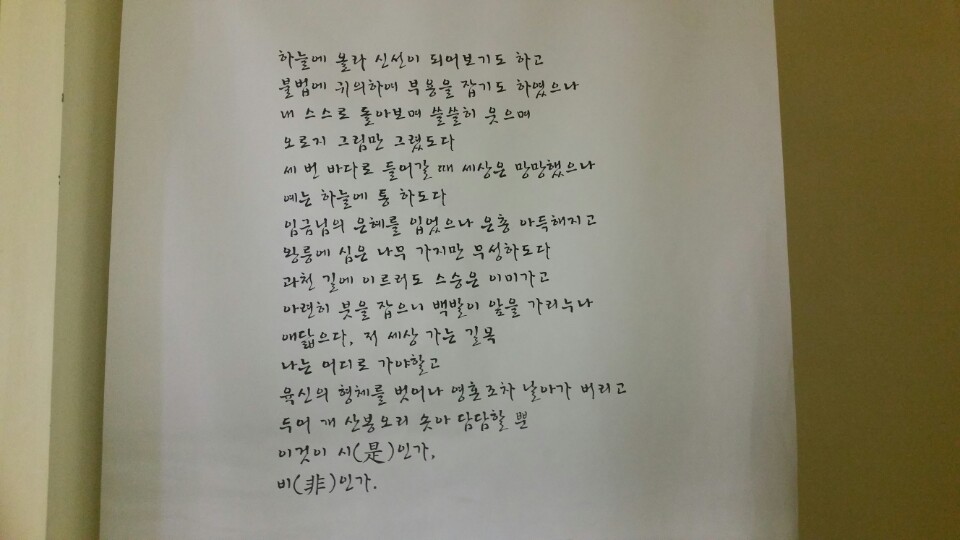 하늘에 올라 신선이 되어보기도 하고
불법에 귀의하여 부용을 잡기도 하였으나
내 스스로 돌아보며 쓸쓸히 웃으며
오로지 그림만 그렸도다
세 번 바다로 들어갈 때 세상은 망망했으나
예는 하늘에 통 하도다
임금님의 은혜를 입었으나 은총 아득해지고
왕릉에 심은 나무 가지만 무성하도다
과천 길에 이르러도 스승은 이미가고
아련히 붓을 잡으니 백발이 앞을 가리누나
애닯으다, 저 세상 가는 길목
나는 어디로 가야할고
육신의 형체를 벗어나 영혼조차 날아가 버리고
두어 개 산봉오리 솟아 담담할 뿐
이것이 시(是)인가,
비(非)인가.